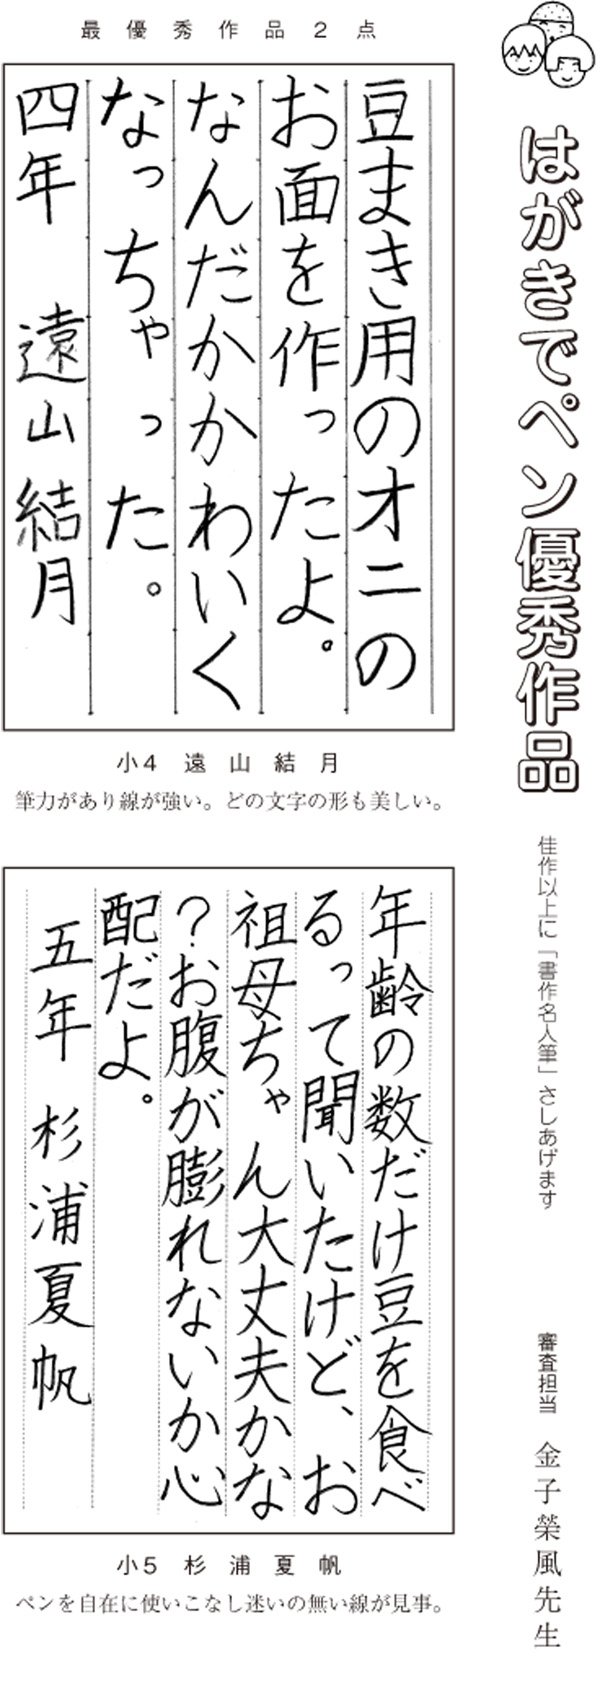 はがきでペン優秀作品
佳作以上に「書作名人筆」さしあげます
審査担当　金子榮風先生
最優秀作品２点
豆まき用のオニの
お面を作ったよ。
なんだかかわいく
なっちゃった。
四年　遠山結月
小４　遠山結月
筆力があり線が強い。どの文字の形も美しい。
年齢の数だけ豆を食べ
るって聞いたけど、お
祖母ちゃん大丈夫かな
？お腹が膨れないか心
配だよ。
五年　杉浦夏帆
小５　杉浦夏帆
ペンを自在に使いこなし迷いの無い線が見事。